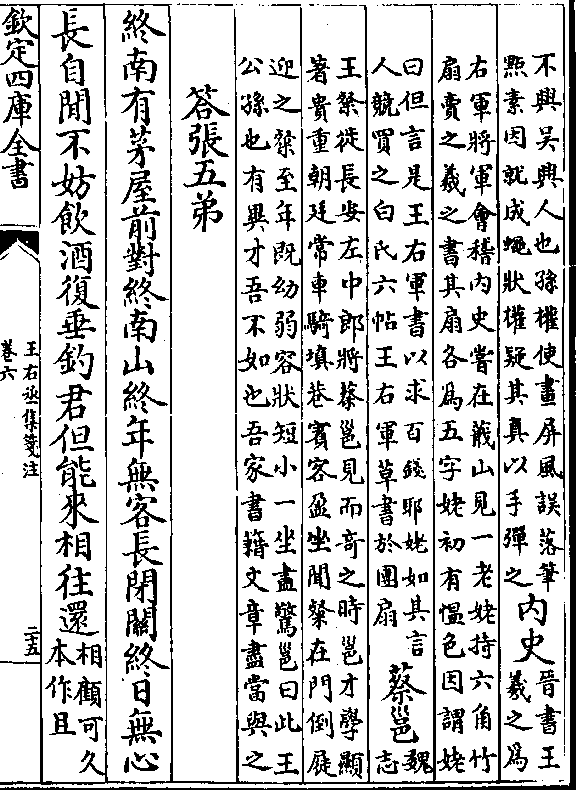 不興吳興人也孫權使畫屏風誤落筆
㸃素因就成蠅狀權疑其真以手彈之
内史
晉書王
羲之為
右軍將軍會稽内史嘗在蕺山見一老姥持六角竹
扇賣之羲之書其扇各為五字姥初有愠色因謂姥
曰但言是王右軍書以求百錢耶姥如其言
人競買之白氏六帖王右軍草書於團扇
蔡邕
魏
志
王粲徙長安左中郎將蔡邕見而奇之時邕才學顯
著貴重朝廷常車騎填巷賓客盈坐聞粲在門倒屣
迎之粲至年既幼弱容狀短小一坐盡驚邕曰此王
公孫也有異才吾不如也吾家書籍文章盡當與之
荅張五弟
終南有茅屋前對終南山終年無客長閉關終日無心
長自閒不妨飲酒復垂釣君但能來相往還
相顧可久
本作且
欽定四庫全書
王右丞集箋注
卷六
二十五